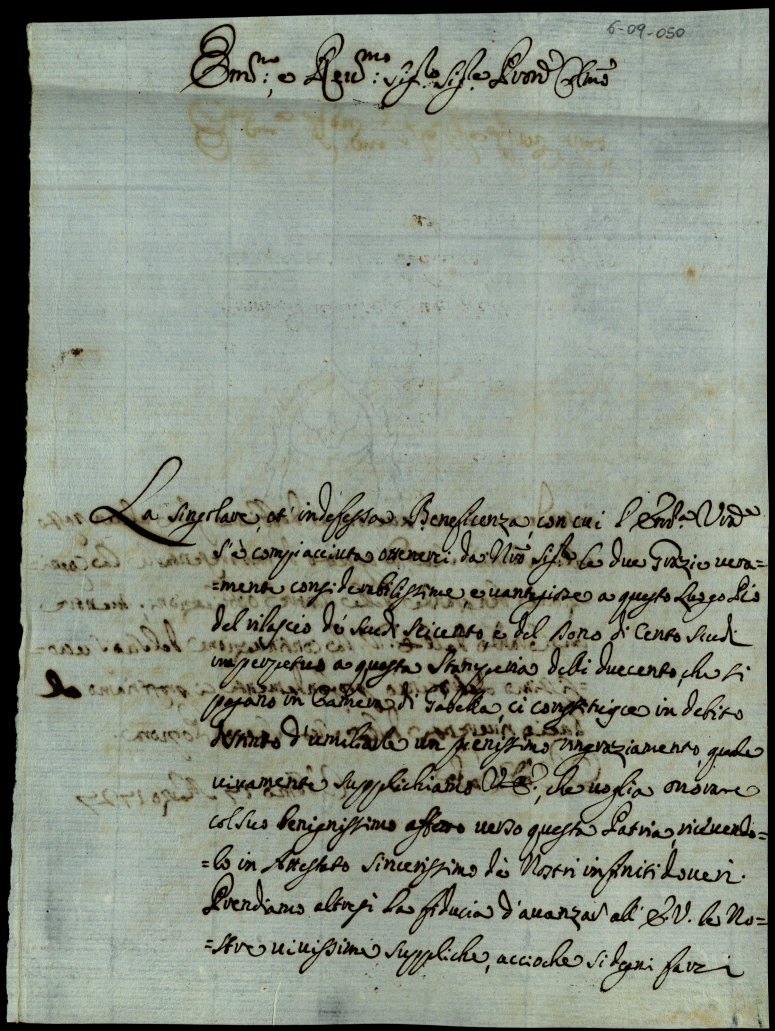 6-09-050
Em.mo e Rev.mo Sig.re Sig.re Pron.e Col.mo
La singolare, et' indefessa Beneficenza, con cui l'Em.za V.ra
s'è compiacciuta ottenerci da N.ro Sig.re le due Grazie vera=
=mente considerabilissime, e vantagiose a questo Luogo Pio
del rilascio de' scudi seicento, e del Bono di Cento scudi
in perpetuo a questa Stamperia delli duecento, che si
pagano in Camera di Gabella, ci constringe in debito
d'umiliarle un pienissimo ringraziamento, quale
vivamente supplichiamo V.E., che voglia onorare
col suo benignissimo affetto verso questa Patria, ricevendo=
=lo in Attestato sincerissimo de' Nostri infiniti doveri.
Prendiamo altresì la fiducia d'avanzar all' E.V. le No=
=stre vivissime suppliche, accioche si degni farci